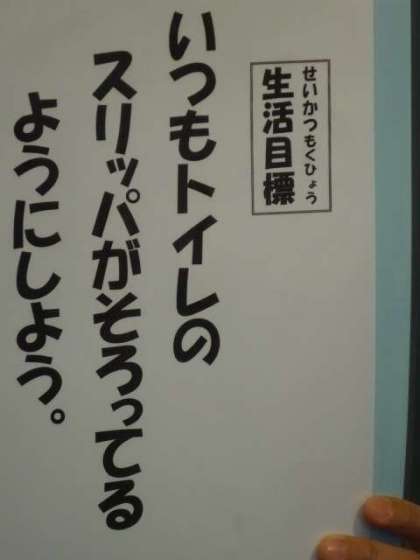 せいかつもくひょう
生活目標
いつもトイレの
スリッパがそろってる
ようにしよう。